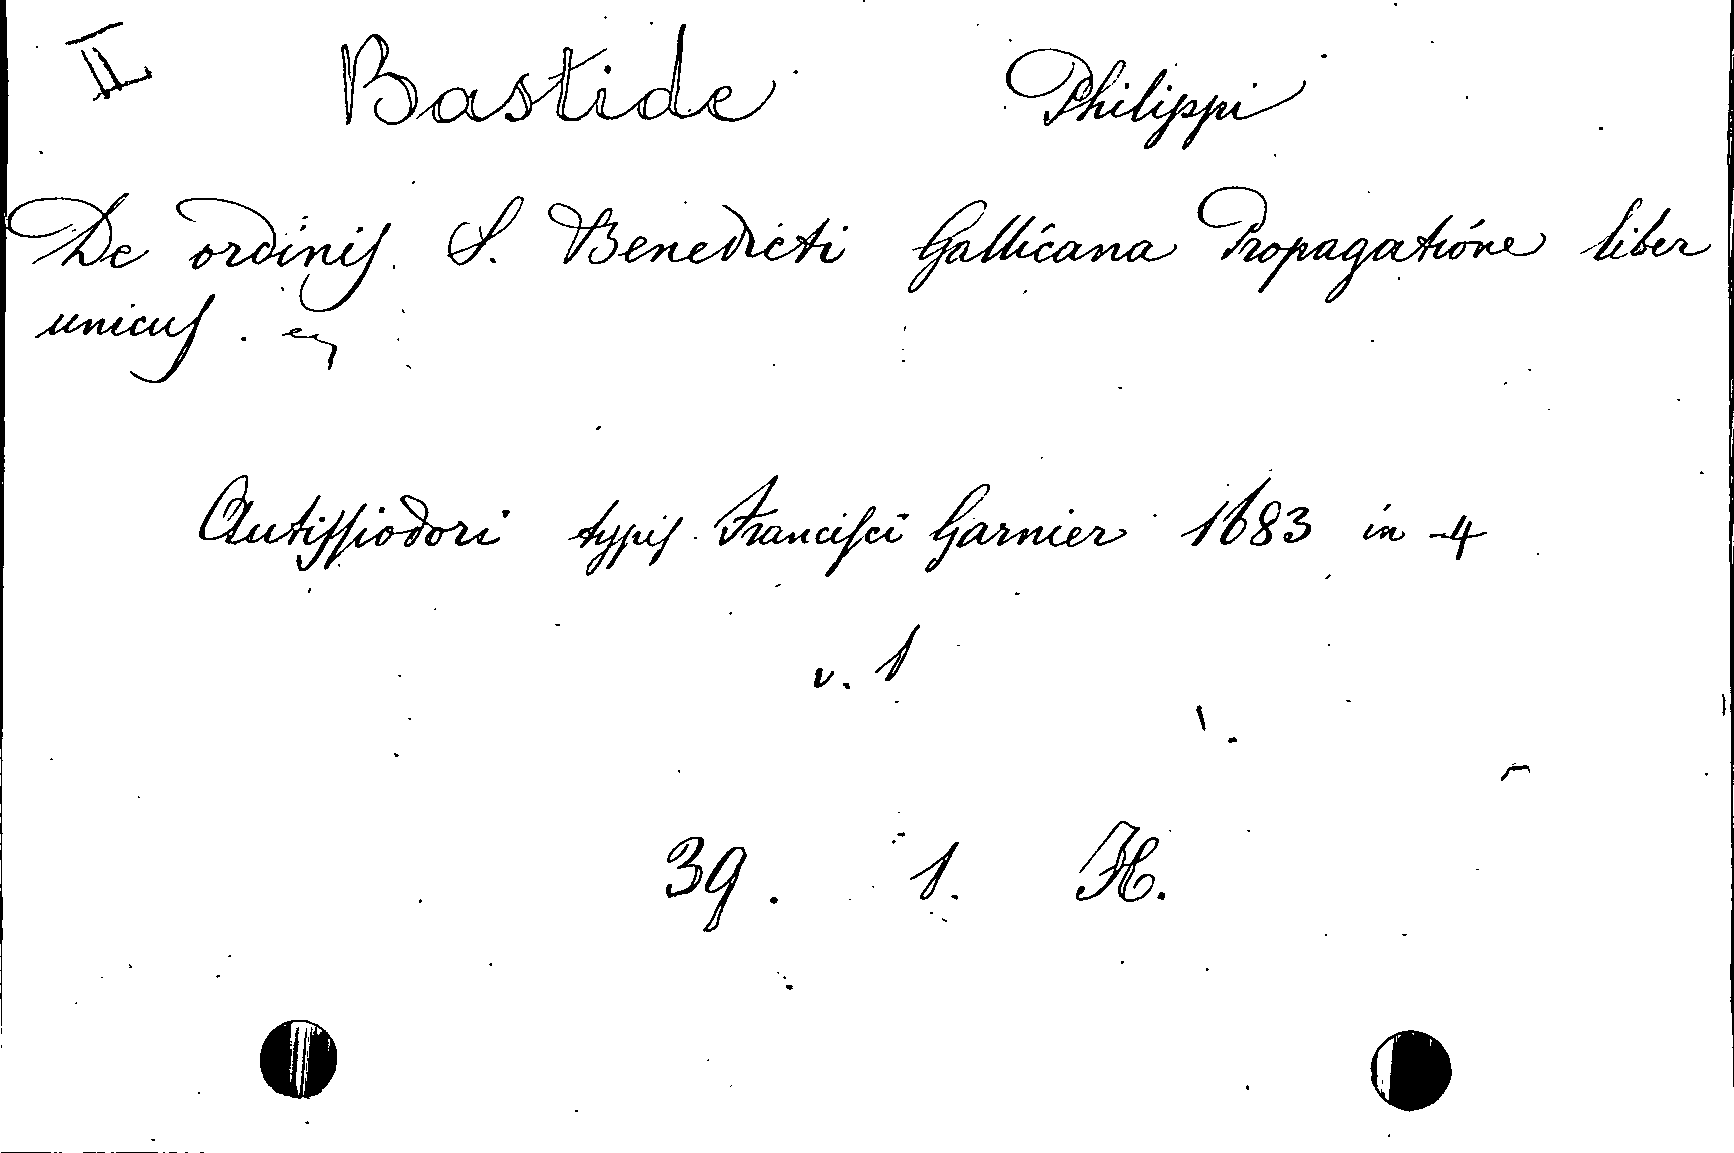 II Bastide Philippi
De ordinis S. Benedicti Gallicana Propagatione liber
unicus.
Autissiodori typis Francisci Garnier 1683 in -4
v. 1
39. 1. H.